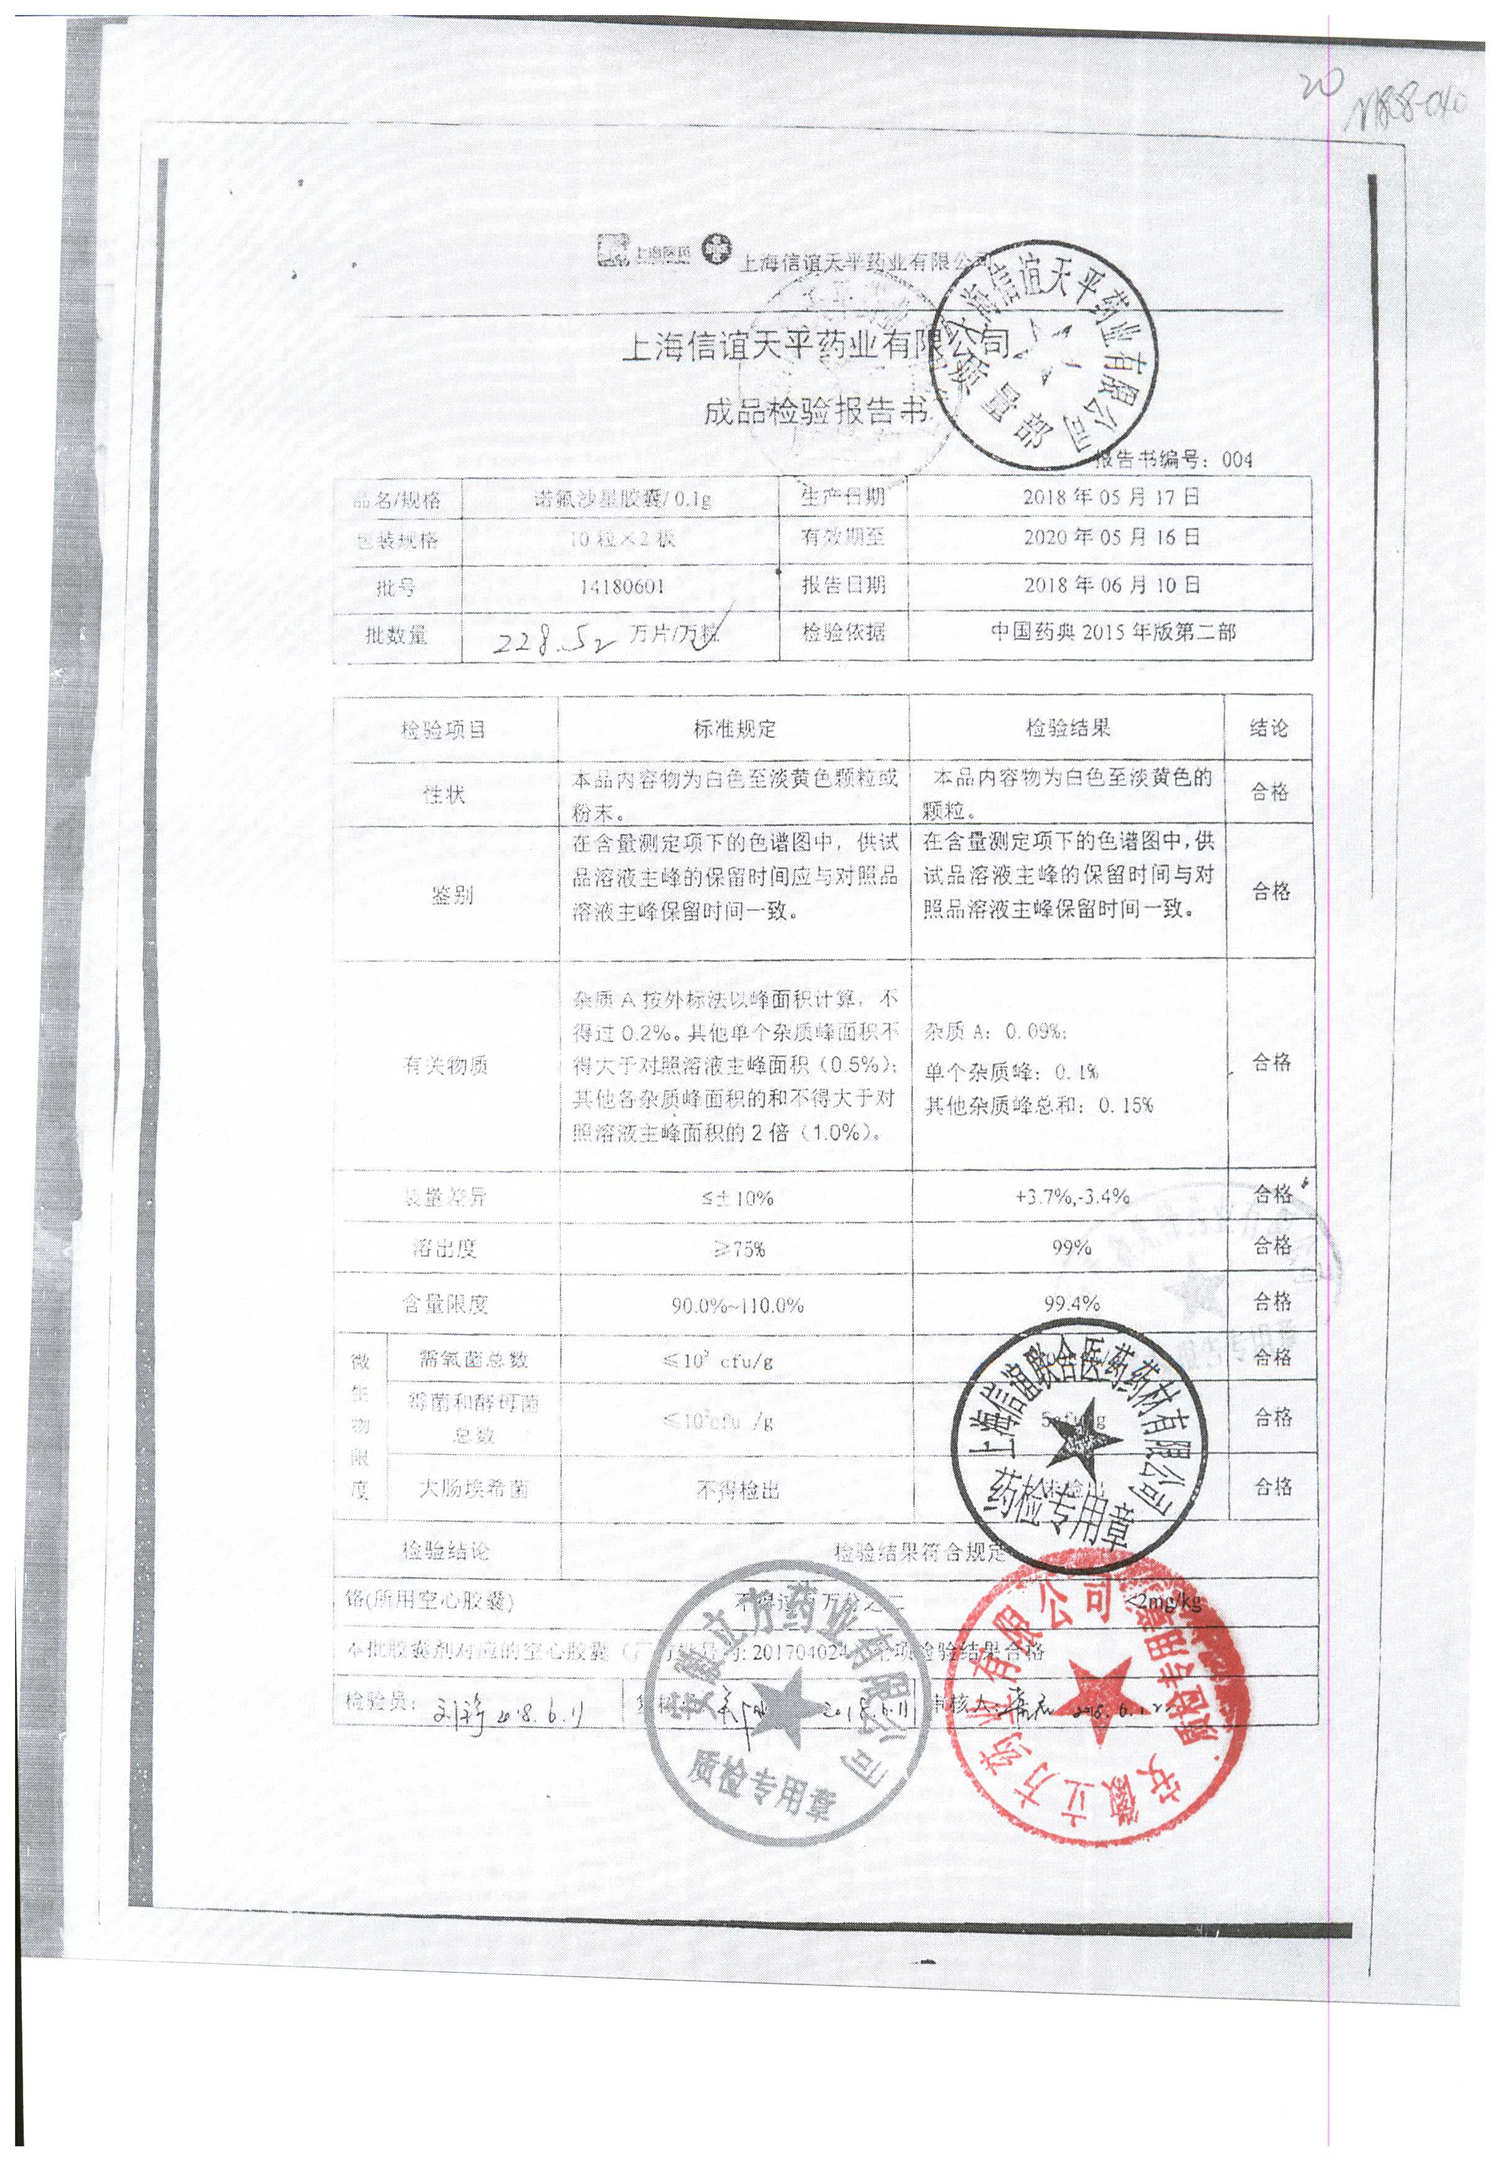 20
上海医药 上海信谊天平药业有限公司
上海信谊天平药业有限公司
质量部
上海信谊天平药业有限公司
成品检验报告书
报告书编号：004
品名/规格 诺氟沙星胶囊/0.1g 生产日期 2018 年 05 月 17 日
包装规格 10 粒×2 板 有效期至 2020 年 05 月 16 日
批号 14180601 报告日期 2018 年 06 月 10 日
批数量 228.52 万片/万粒 检验依据 中国药典 2015 年版第二部
检验项目 标准规定 检验结果 结论
性状 本品内容物为白色至淡黄色颗粒或 本品内容物为白色至淡黄色的 合格
粉末。 颗粒。
在含量测定项下的色谱图中，供试 在含量测定项下的色谱图中，供
鉴别 品溶液主峰的保留时间应与对照品 试品溶液主峰的保留时间与对 合格
溶液主峰保留时间一致。 照品溶液主峰保留时间一致。
杂质 A 按外标法以峰面积计算，不
得过 0.2%。其他单个杂质峰面积不 杂质 A：0.09%;
有关物质 得大于对照溶液主峰面积（0.5%）； 单个杂质峰：0.1% 合格
其他各杂质峰面积的和不得大于对 其他杂质峰总和：0.15%
照溶液主峰面积的 2 倍（1.0%）。
装量差异 ≤±10% +3.7%,-3.4% 合格
溶出度 ≥75% 99% 合格
含量限度 90.0%~110.0% 99.4% 合格
微生物限度
需氧菌总数 ≤10³ cfu/g 合格
霉菌和酵母菌总数 ≤10²cfu /g 合格
大肠埃希菌 不得检出 未检出 合格
上海信谊联合医药药材有限公司
药检专用章
检验结论 检验结果符合规定
铬(所用空心胶囊) 不得过百万分之二 <2mg/kg
本批胶囊剂对应的空心胶囊 201704024 全项检验结果合格
检验员： 2018.6.11 复核人 2018.6.11 审核人：
安徽立方药业有限公司
质检专用章
安徽立方药业有限公司
质检专用章